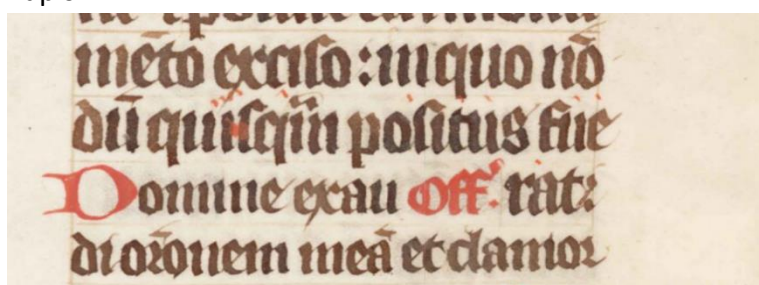 mēto exciso : in quo nō
dū quisq̄m positus fue
Domine exau Off. rat:
di orōnem meā et clamor